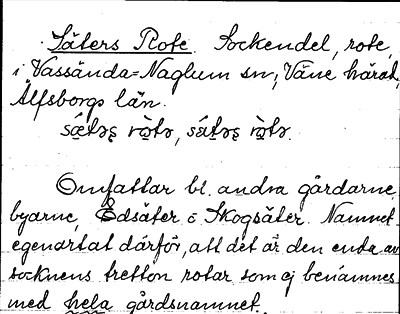 Säters Rote. Sockendel, rote,
i Vassända-Naglum sn, Väne härad,
Älfsborgs län.
Omfattar bl. andra gårdarne,
byarne, Edsäter o Skogsäter. Namnet
egenartat därför, att det är den enda av
socknens tretton rotar som ej benämnes
med hela gårdsnamnet.